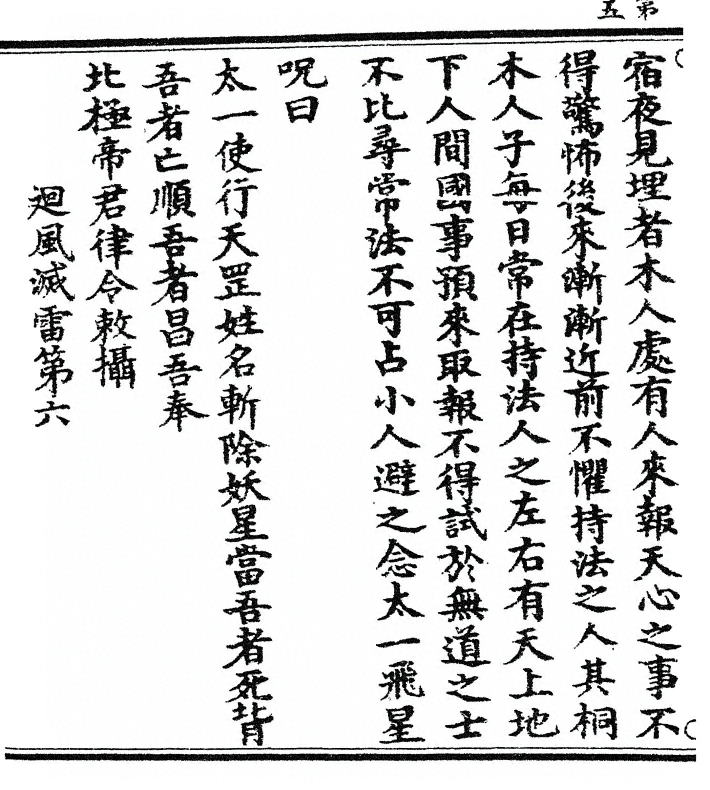 第
五
宿夜見埋者木人處有人來報天心之事不
得驚怖後來漸漸近前不懼持法之人其桐
木人子每日常在持法人之左右有天上地
下人間國事預來取報不得試於無道之士
不比尋常法不可占小人避之念太一飛星
呪曰
太一使行天罡姓名斬除妖星當吾者死背
吾者亡順吾者昌吾奉
北極帝君律令敕攝
迴風滅雷第六